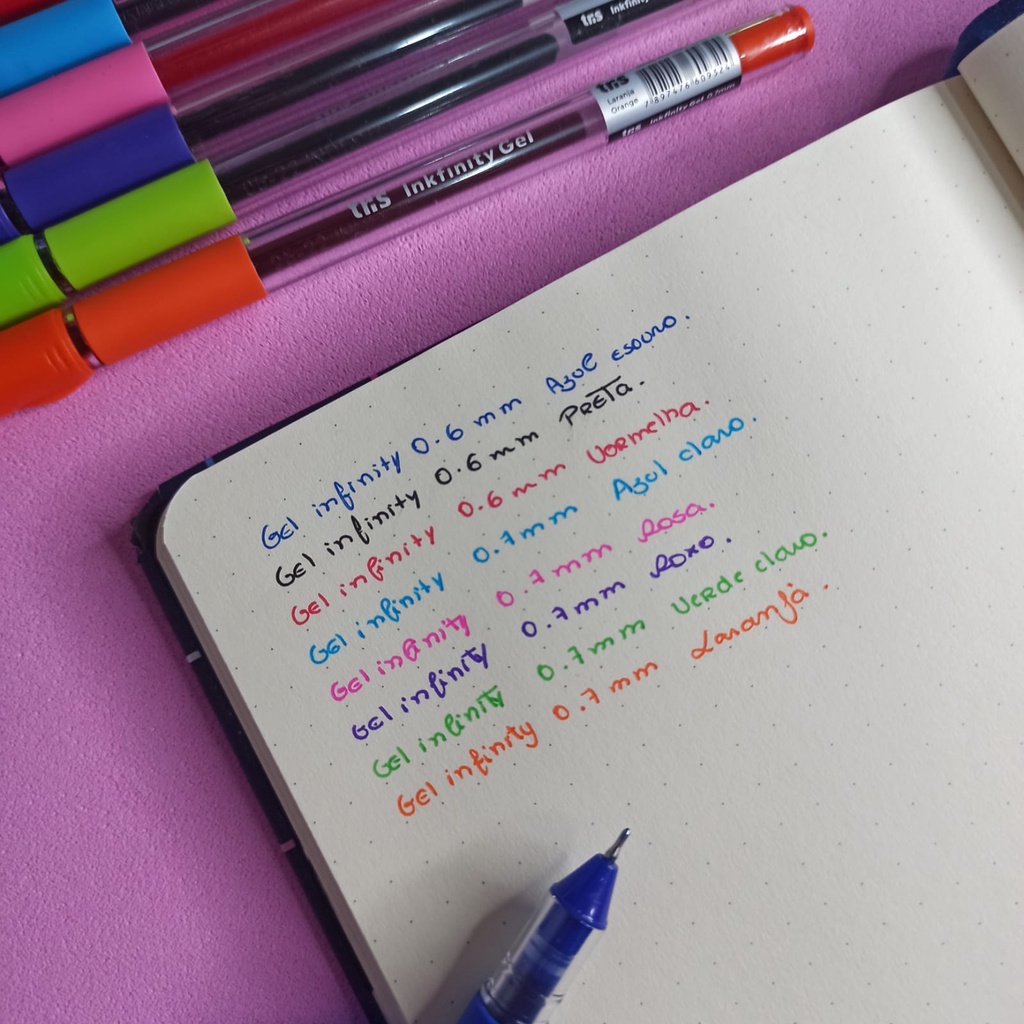 tris Inkfinity
tris
Laranja
Orange
7 897476 609324
tris Inkfinity Gel 0.7mm
tris Inkfinity Gel
Gel infinity 0.6 mm Azul escuro.
Gel infinity 0.6 mm PRETA.
Gel infinity 0.6 mm Vermelha.
Gel infinity 0.7 mm Azul claro.
Gel infinity 0.7 mm Rosa.
Gel infinity 0.7 mm Roxo.
Gel infinity 0.7 mm Verde claro.
Gel infinity 0.7 mm Laranja.